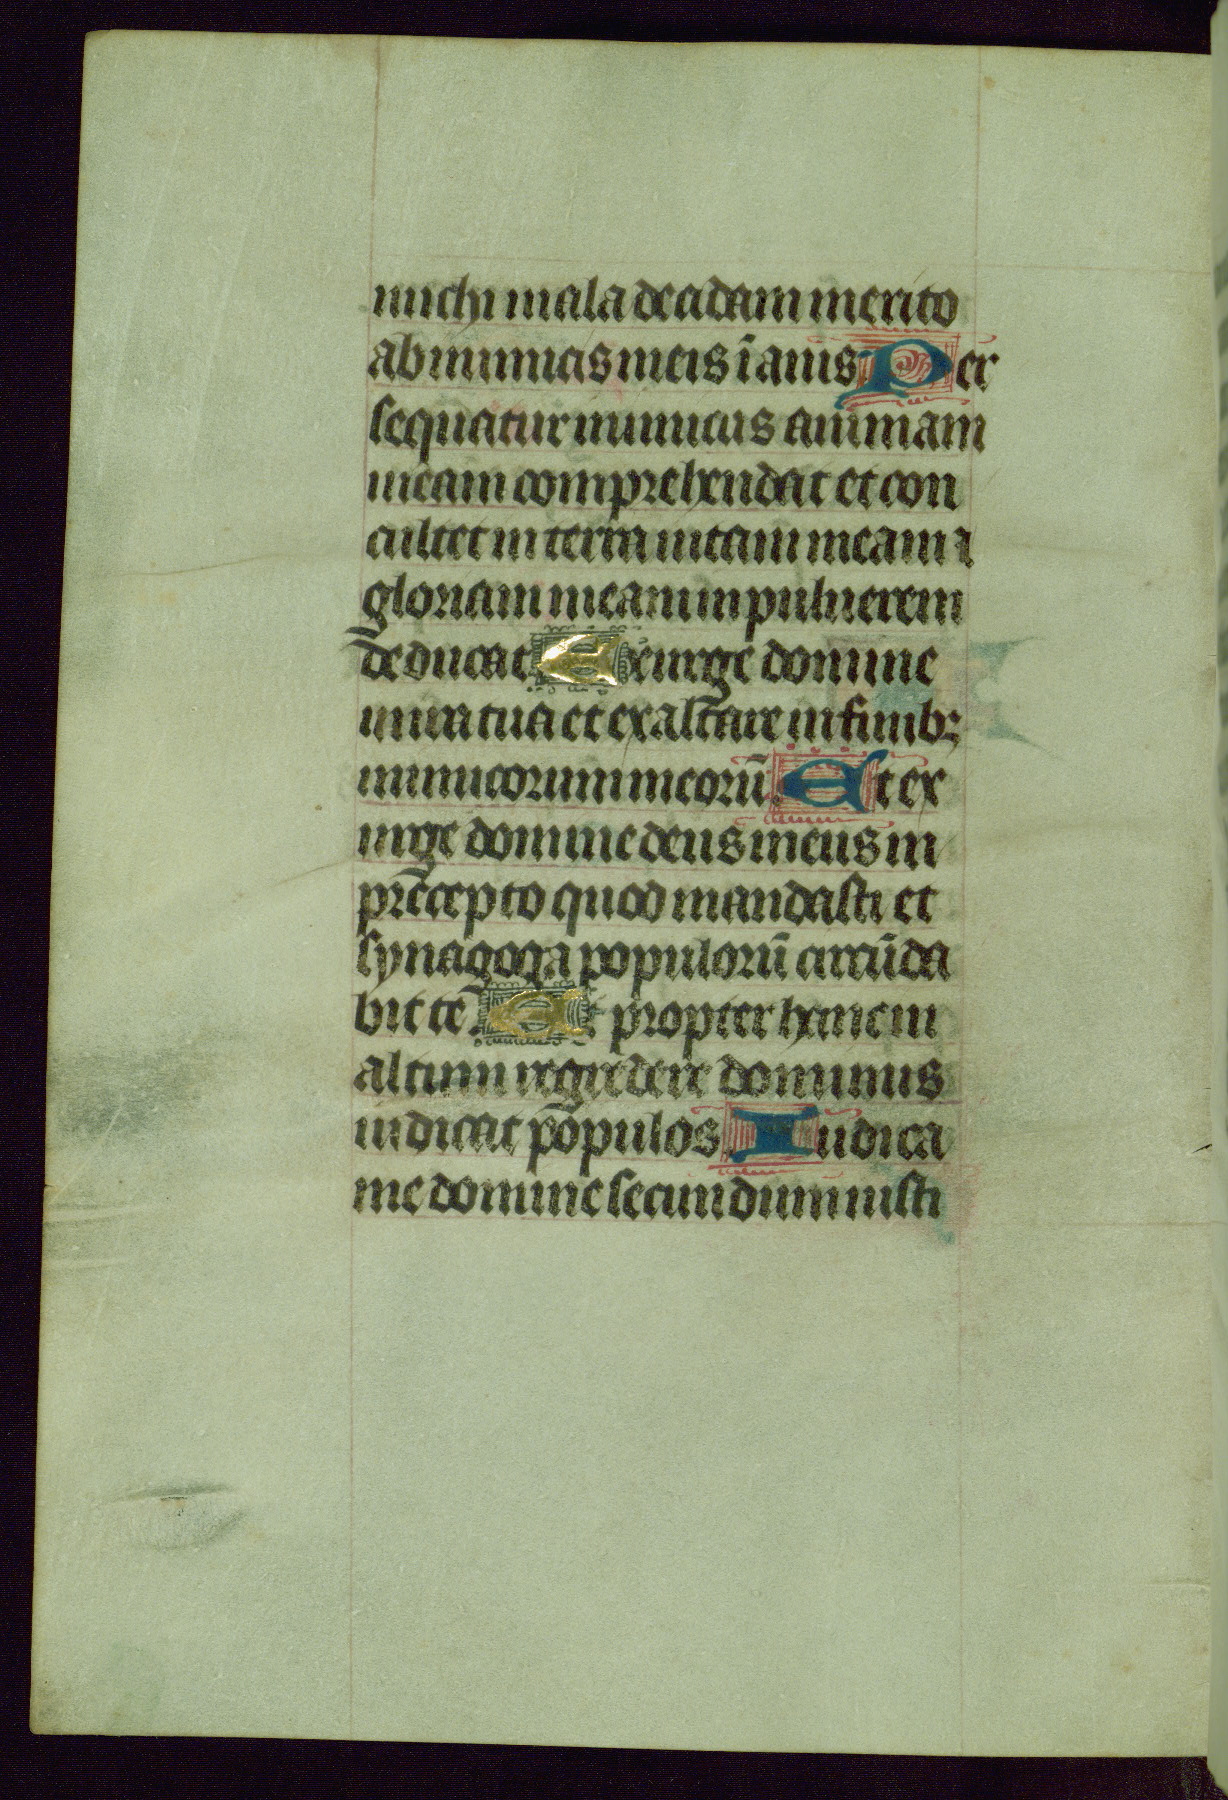 michi mala decidam merito
ab inimicis meis īanis Per
sequatur inimicus animam
meam comprehendat et con
culcet in terra uitam meam ⁊
gloriam meam in puluerem
deducat Exurge domine
in ira tua et exaltare in finibꝫ
inimicorum meorū Et ex
urge domine deus meus in
precepto quod mandasti et
synagoga populorū circūda
bit te Et propter hanc in
altum regredere dominus
iudicat populos Iudica
me domine secundum iusti